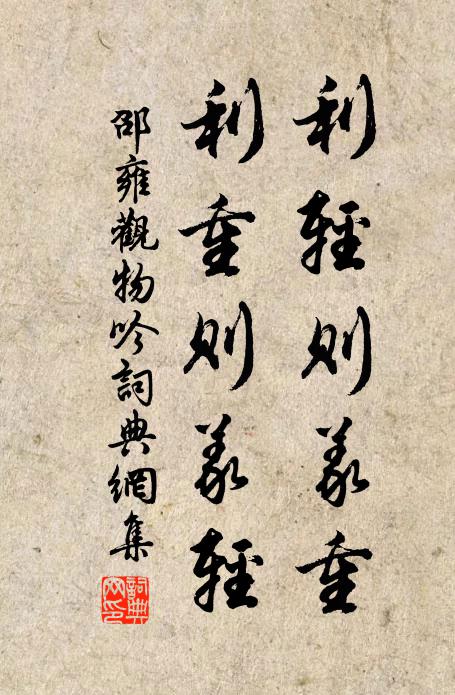 利輕則義重
利重則義輕
邵雍觀物吟詞典網集
詞典
網印